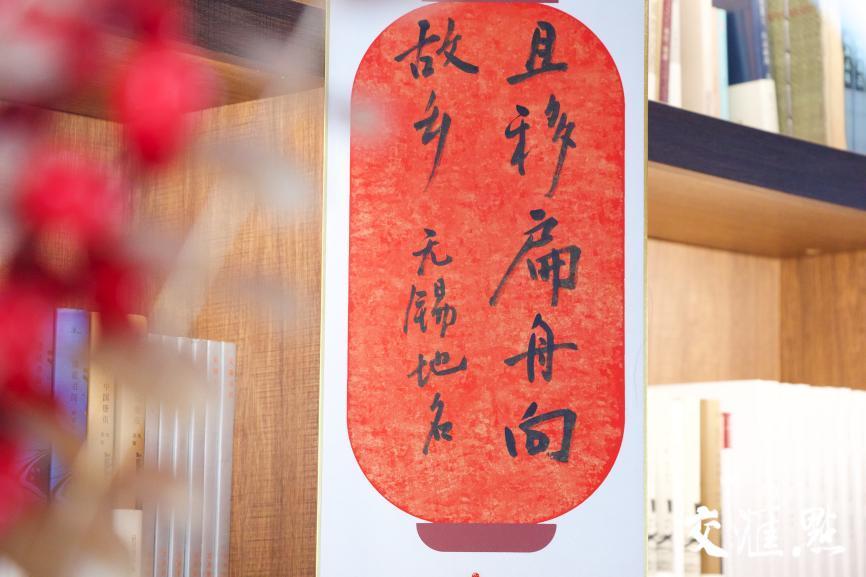 且移扁舟向
故乡 无锡地名
交汇点